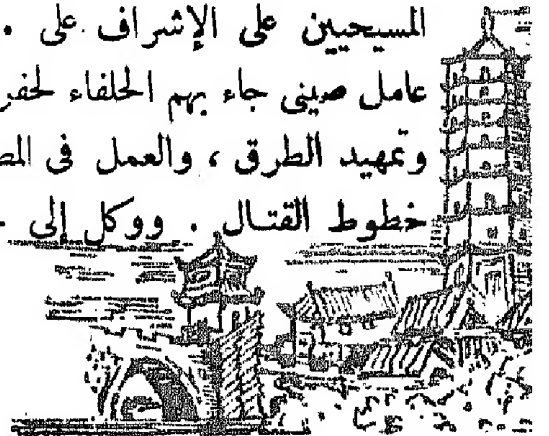 المسيحيين على الإشراف على .
عامل صينى جاء بهم الحلفاء لحفر
وتمهيد الطرق ، والعمل فى المص
خطوط القتال . ووكل إلى